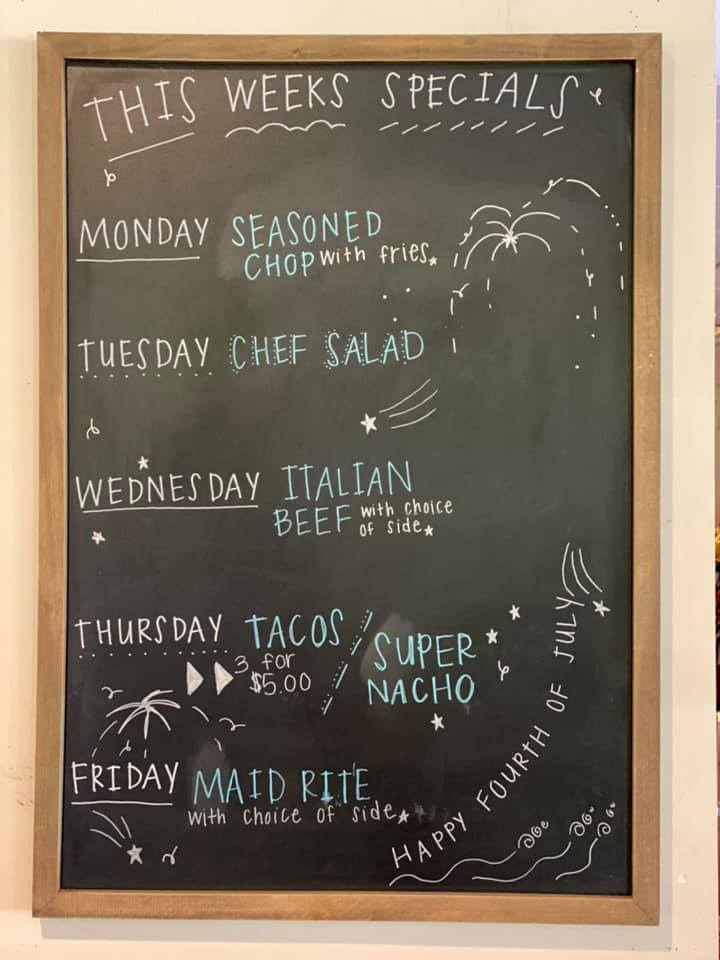 THIS WEEKS SPECIALS
MONDAY SEASONED
CHOP with fries
TUESDAY CHEF SALAD
WEDNESDAY ITALIAN
BEEF with choice
of side
THURSDAY TACOS / SUPER
3 for
$5.00 NACHO
FRIDAY MAID RITE
with choice of side
HAPPY FOURTH OF JULY